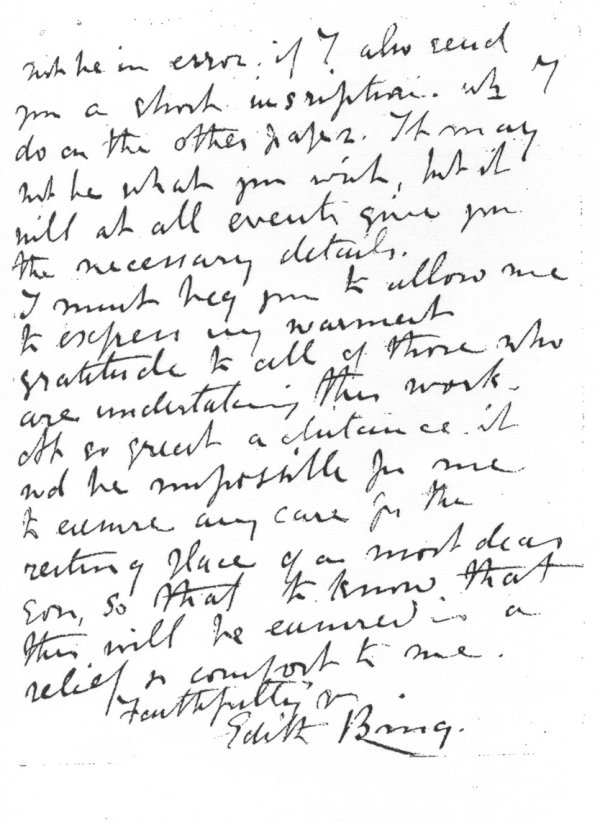 not be in error. if I also send
you a short inscription. wh I
do on the other paper. It may
not be what you wish, but it
will at all events give you
the necessary details.
I must beg you to allow me
to express my warmest
gratitude to all of those who
are undertaking this work.
At so great a distance it
wd be impossible for me
to ensure any care for the
resting place of a most dear
son, so that to know that
this will be ensured is a
relief & comfort to me.
Faithfully yr
Edith